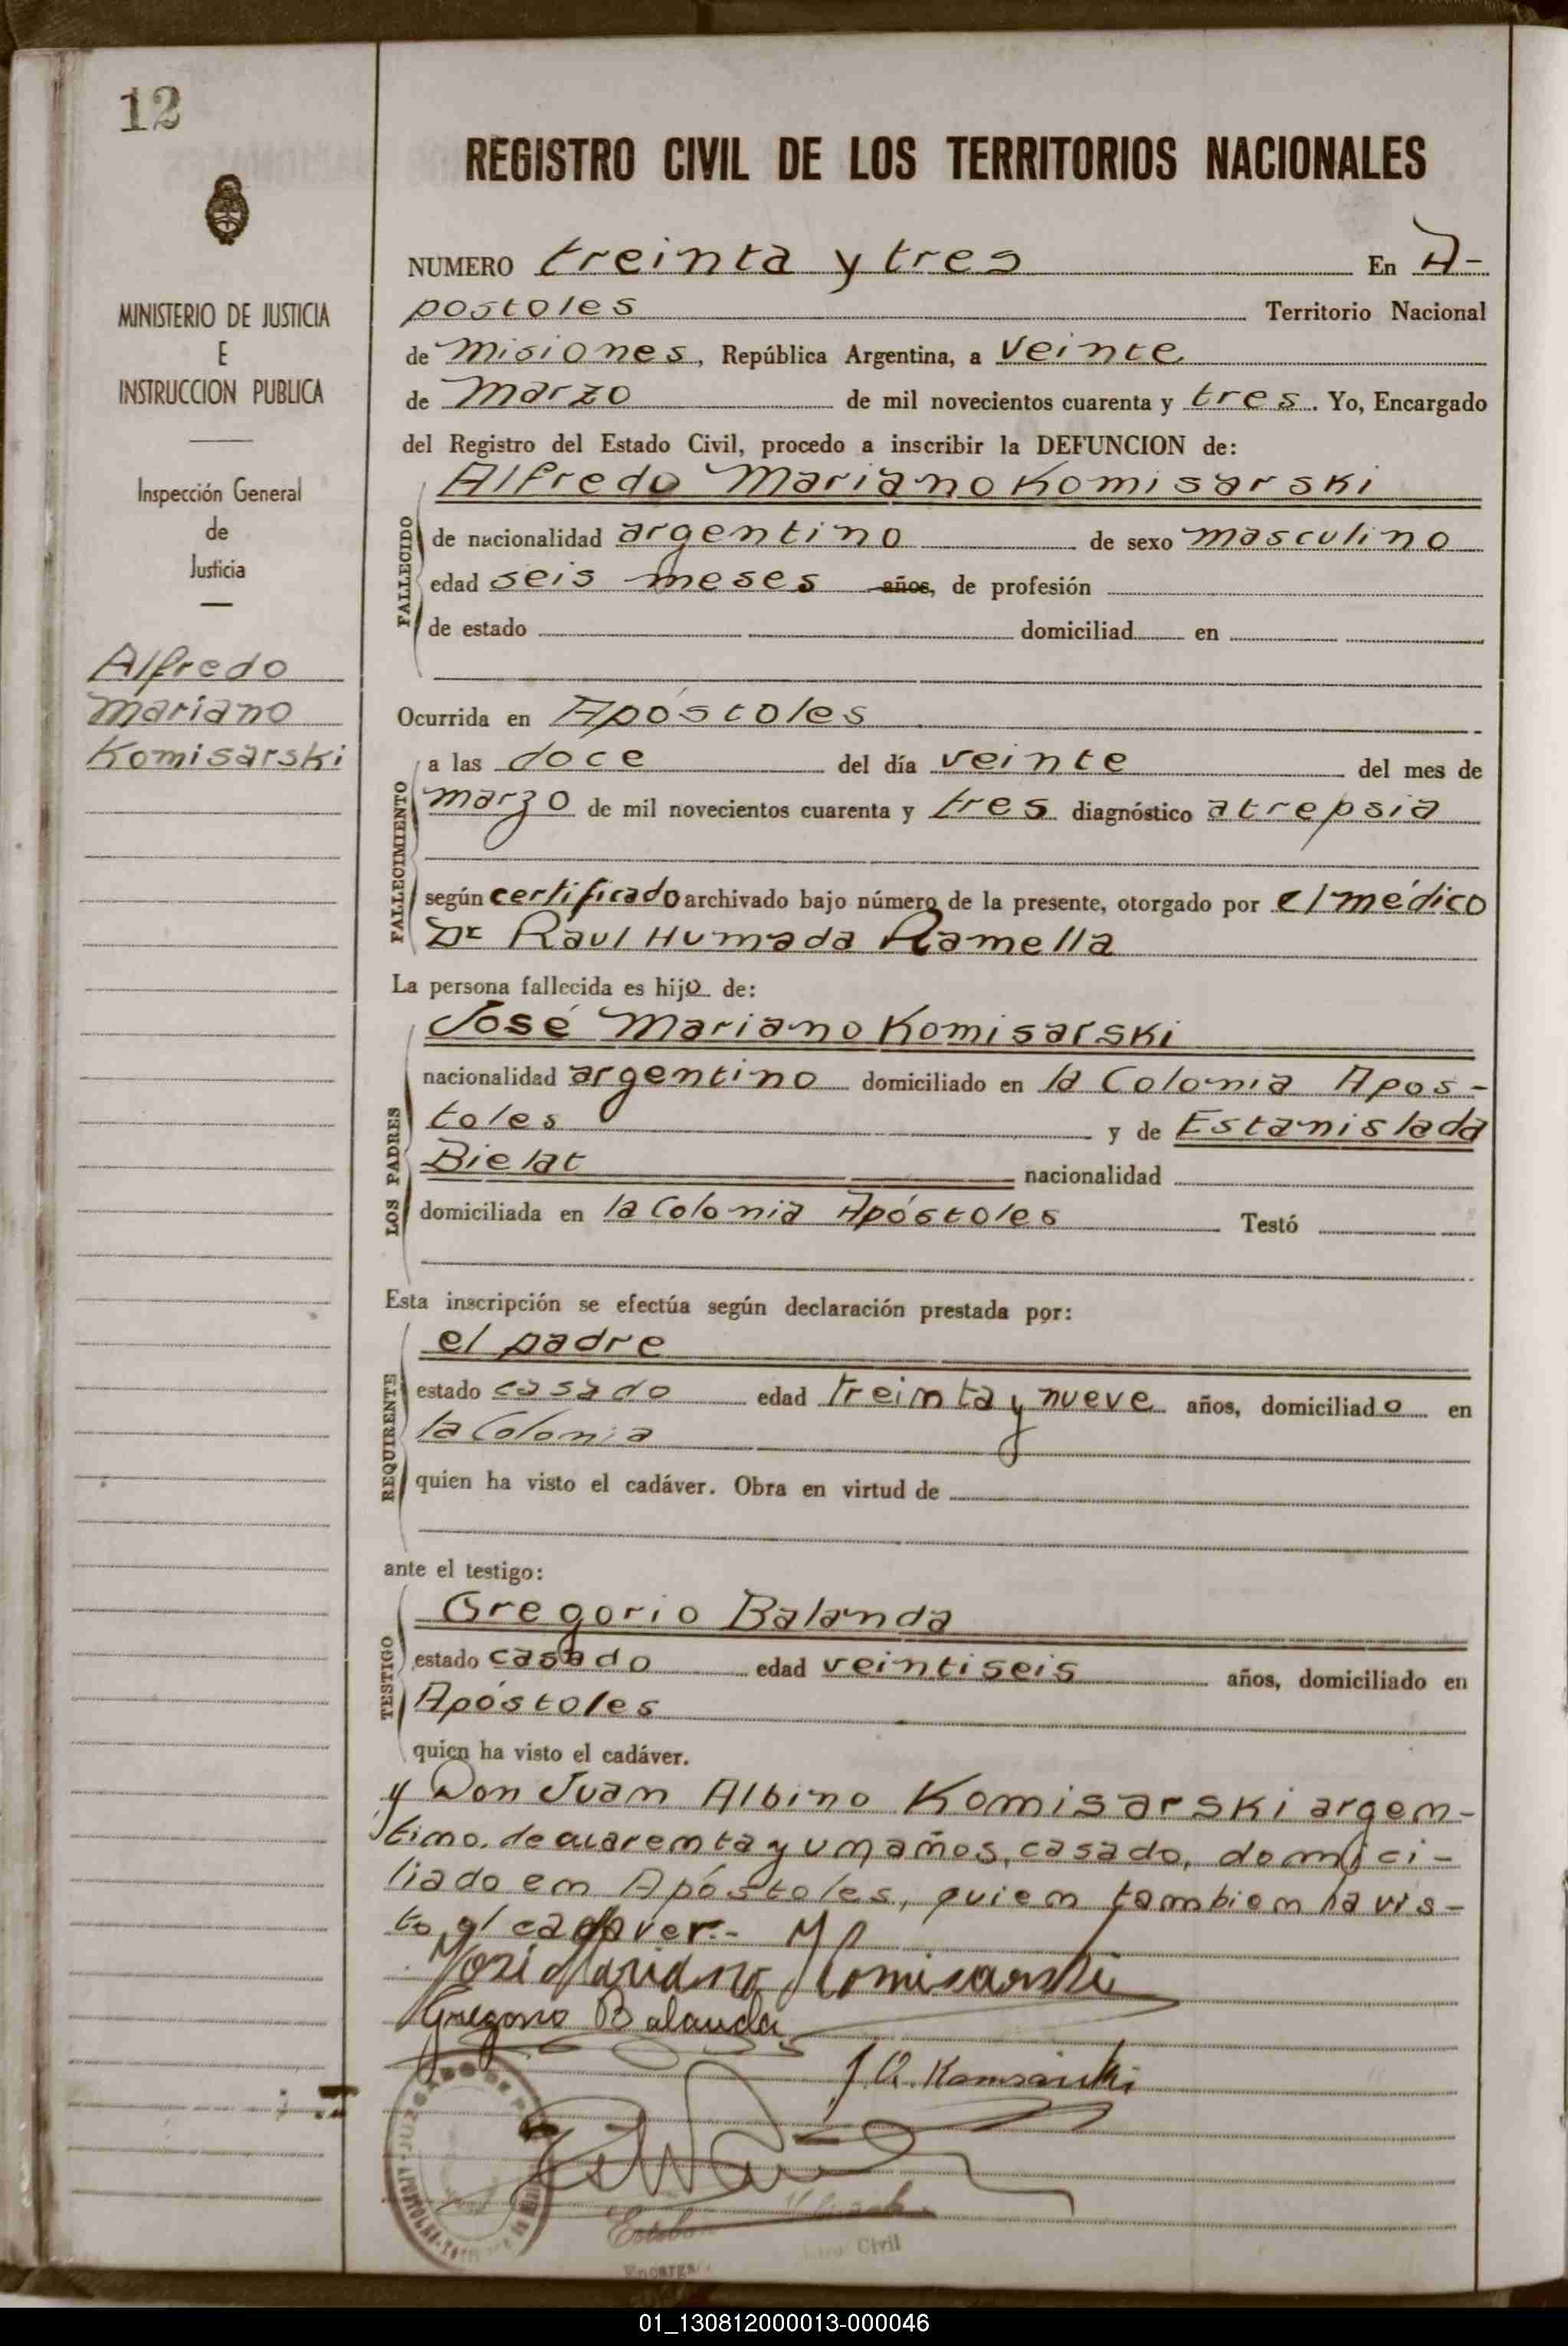 12
MINISTERIO DE JUSTICIA
E
INSTRUCCION PUBLICA
Inspección General
de
Justicia
Alfredo
Mariano
Komisarski
REGISTRO CIVIL DE LOS TERRITORIOS NACIONALES
NUMERO treinta y tres En A-
postoles Territorio Nacional
de Misiones, República Argentina, a veinte
de Marzo de mil novecientos cuarenta y tres. Yo, Encargado
del Registro del Estado Civil, procedo a inscribir la DEFUNCION de:
FALLECIDO
Alfredo Mariano Komisarski
de nacionalidad argentino de sexo masculino
edad seis meses años, de profesión
de estado domiciliad en
Ocurrida en Apóstoles
FALLECIMIENTO
a las doce del día veinte del mes de
marzo de mil novecientos cuarenta y tres diagnóstico atrepsia
según certificado archivado bajo número de la presente, otorgado por el médico
Dr Raul Humada Ramella
La persona fallecida es hijo de:
LOS PADRES
José Mariano Komisarski
nacionalidad argentino domiciliado en la Colonia Apos-
toles y de Estanislada
Bielat nacionalidad
domiciliada en la Colonia Apóstoles Testó
Esta inscripción se efectúa según declaración prestada por:
REQUIRENTE
el padre
estado casado edad treinta y nueve años, domiciliado en
la Colonia
quien ha visto el cadáver. Obra en virtud de
ante el testigo:
TESTIGO
Gregorio Balanda
estado casado edad veintiseis años, domiciliado en
Apóstoles
quien ha visto el cadáver.
y Don Juan Albino Komisarski argen-
tino, de cuarenta y un años, casado, domici-
liado en Apóstoles, quien tambien ha vis-
to el cadáver.-
José Mariano Komisarski
Gregorio Balanda
J. A. Komisarski
Esteban
Civil
01_130812000013-000046